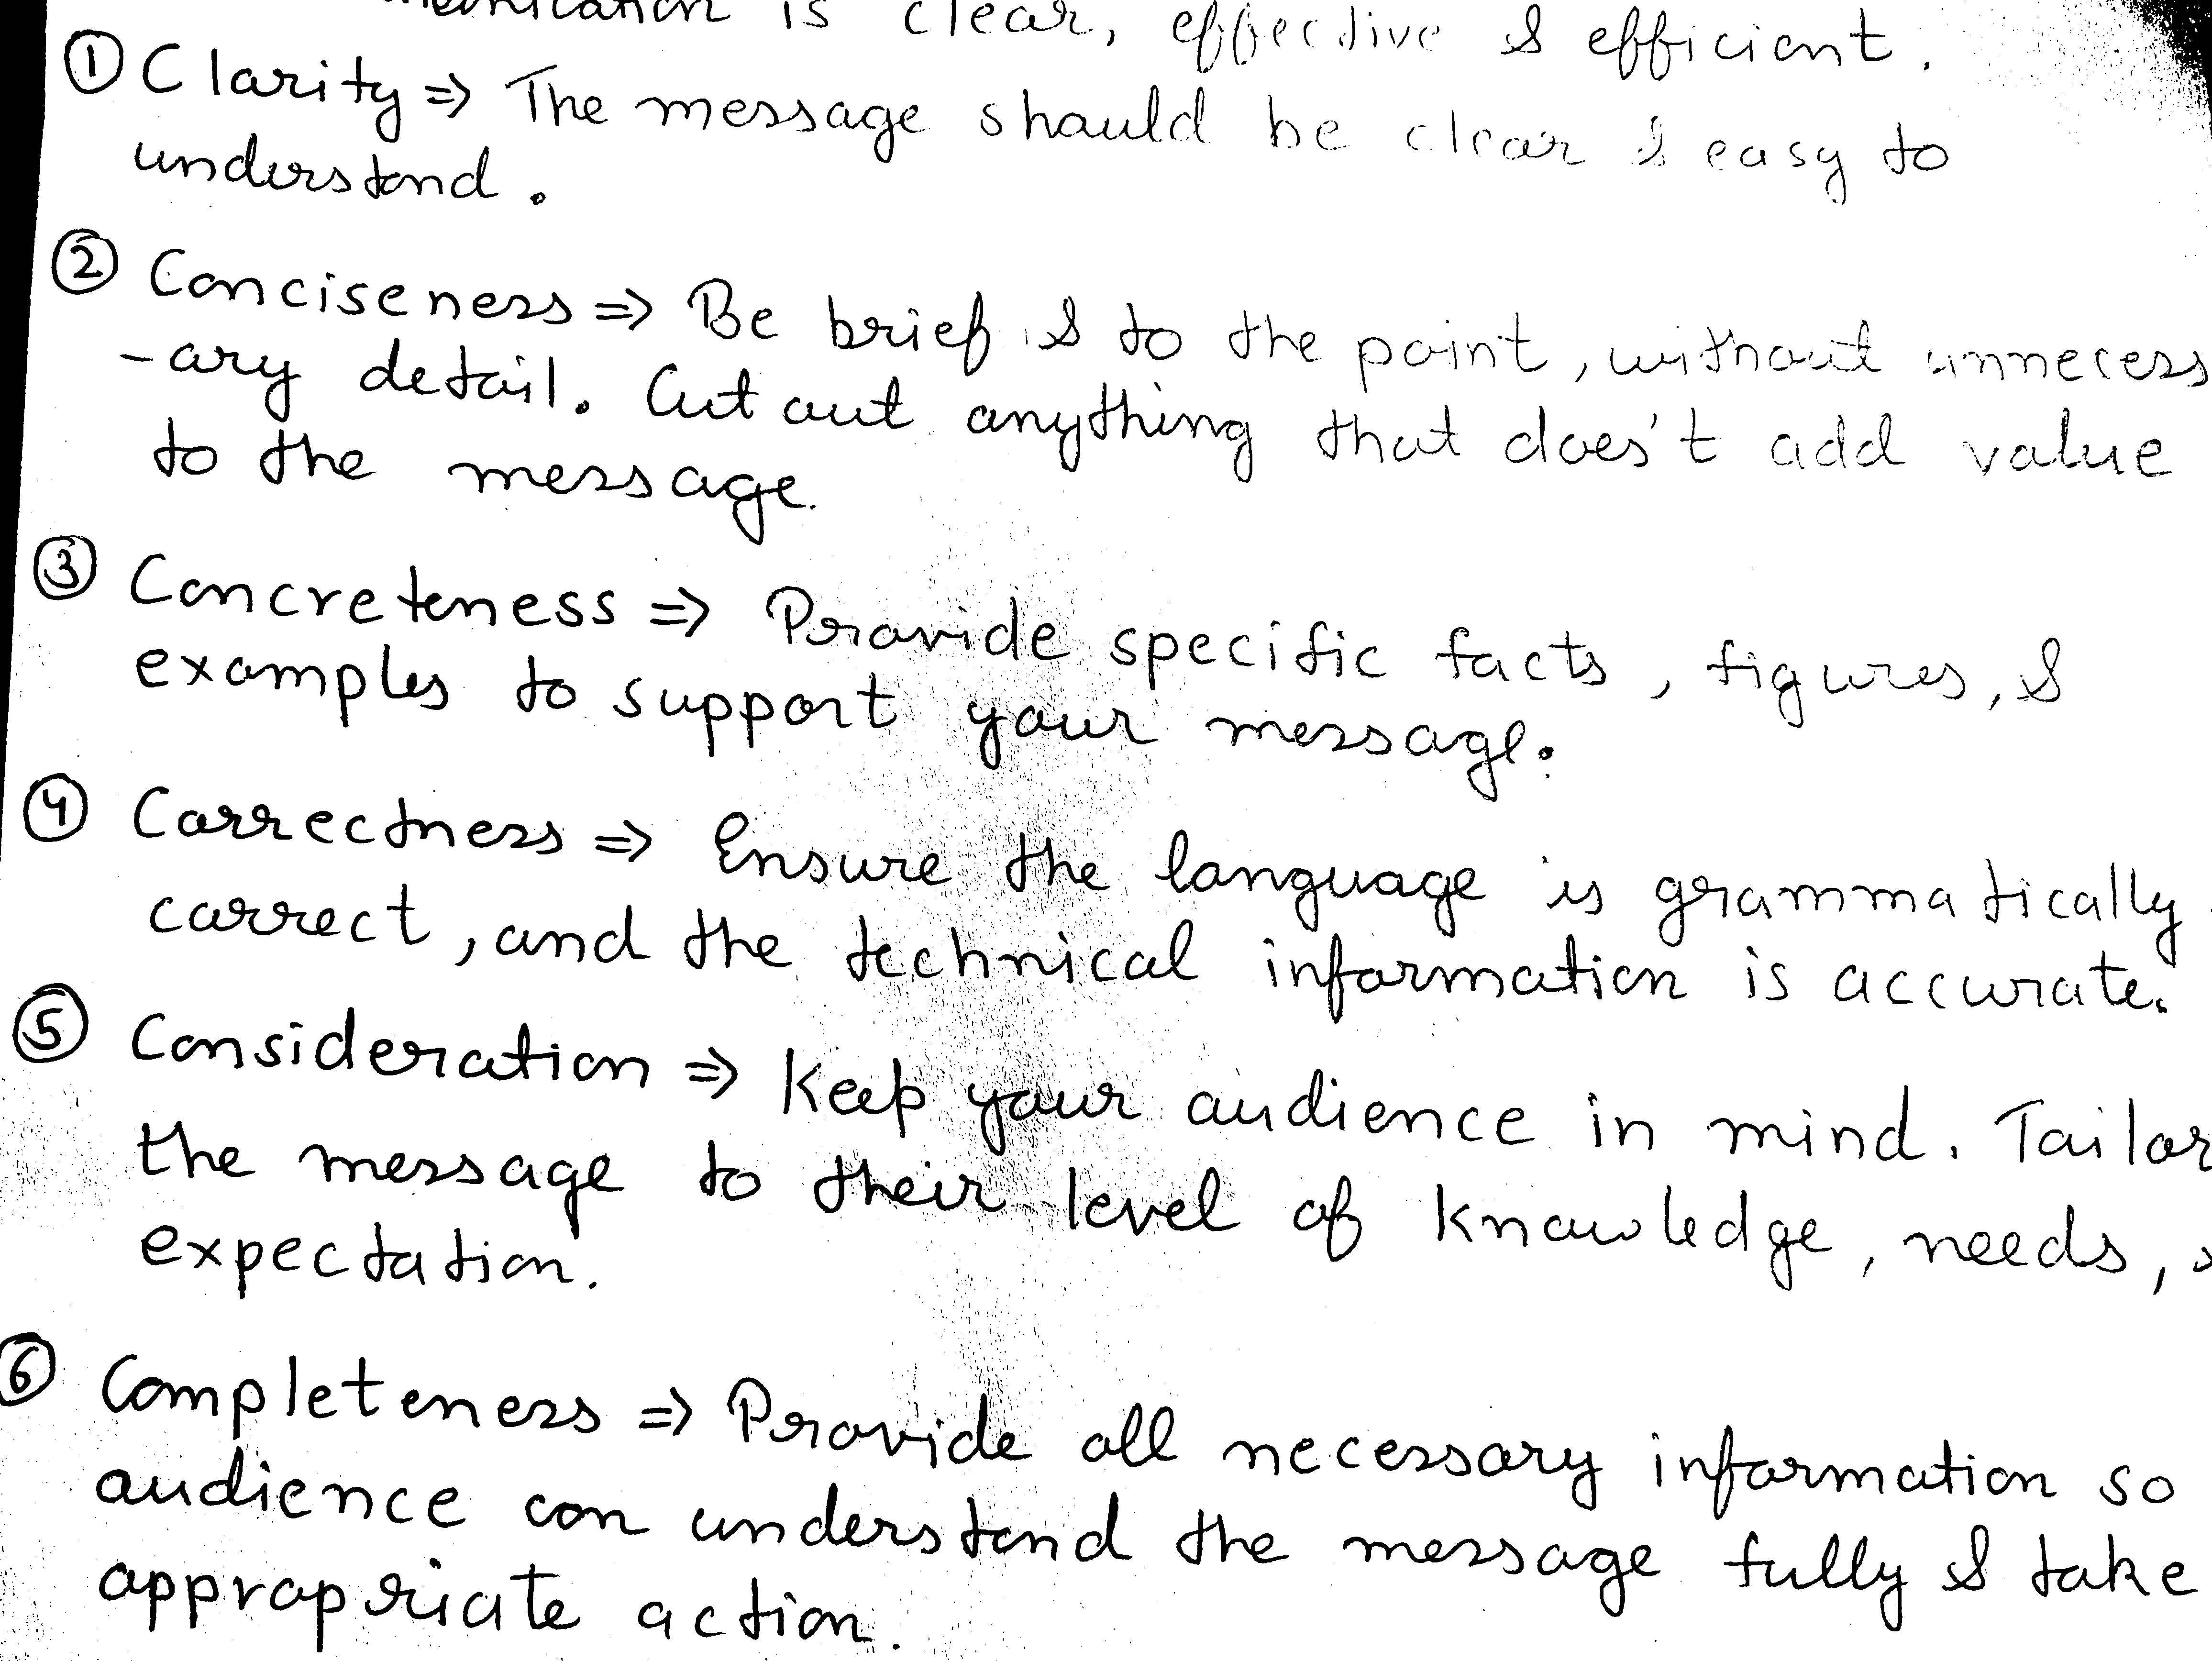 munication is clear, effective & efficient.
① Clarity ⇒ The message should be clear & easy to
understand.
② Conciseness ⇒ Be brief & to the point, without unnecess
-ary detail. Cut out anything that does't add value
to the message.
③ Concreteness ⇒ Provide specific facts, figures, &
examples to support your message.
④ Correctness ⇒ Ensure the language is grammatically
correct, and the technical information is accurate.
⑤ Consideration ⇒ Keep your audience in mind. Tailor
the message to their level of knowledge, needs,
expectation.
⑥ Completeness ⇒ Provide all necessary information so
audience can understand the message fully & take
appropriate action.